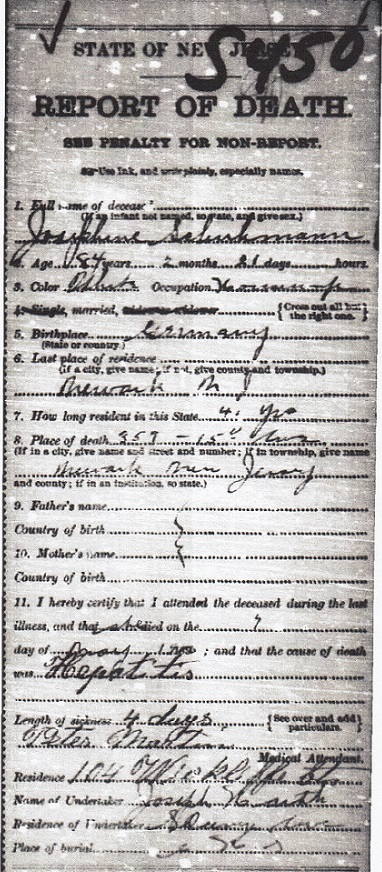 S450
STATE OF NEW JERSEY
REPORT OF DEATH.
SEE PENALTY FOR NON-REPORT.
Use Ink, and write plainly, especially names.
1. Full name of deceased
(If an infant not named, so state, and give sex.)
Josephine Schuhmann
2. Age 84 years 2 months 21 days hours.
3. Color White Occupation
4. Single, married, widow or widower {Cross out all but the right one.}
5. Birthplace Germany
(State or country)
6. Last place of residence
(if a city, give name; if not, give county and township.)
Newark N J
7. How long resident in this State 4 yrs
8. Place of death 357 - 15th Ave
(If in a city, give name and street and number; if in township, give name
Newark New Jersey
and county; if in an institution, so state.)
9. Father's name
Country of birth
10. Mother's name
Country of birth
11. I hereby certify that I attended the deceased during the last
illness, and that she died on the 7
day of ; and that the cause of death
was Hepatitis
Length of sickness 4 days {See over and add particulars.}
Peter
Medical Attendant.
Residence 104
Name of Undertaker Joseph
Residence of Undertaker
Place of burial